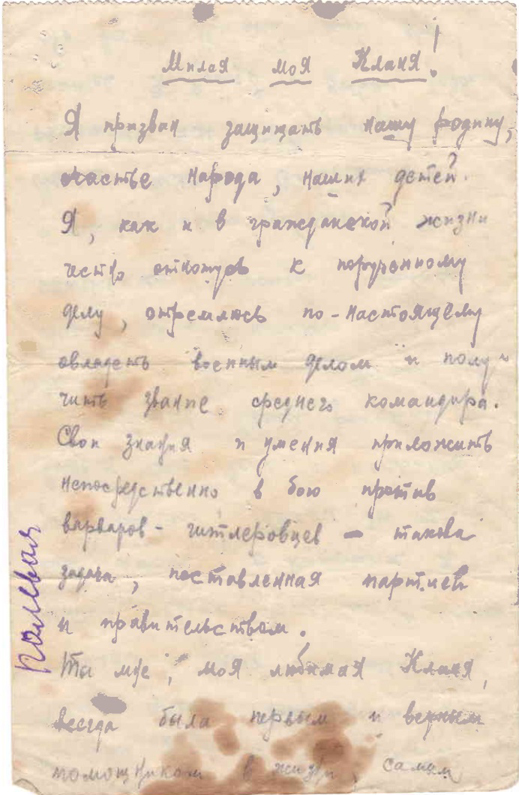 Милая моя Кланя!
Я призван защищать нашу родину,
счастье народа, наших детей.
Я, как и в гражданской жизни
честно относясь к порученному
делу, стремлюсь по-настоящему
овладеть военным делом и полу-
чить звание среднего командира.
Свои знания и умения приложить
непосредственно в бою против
варваров-гитлеровцев - такова
задача, поставленная партией
и правительством.
Ты мне, моя любимая Кланя,
всегда была первым и верным
помощником в жизни, самым
Полевая